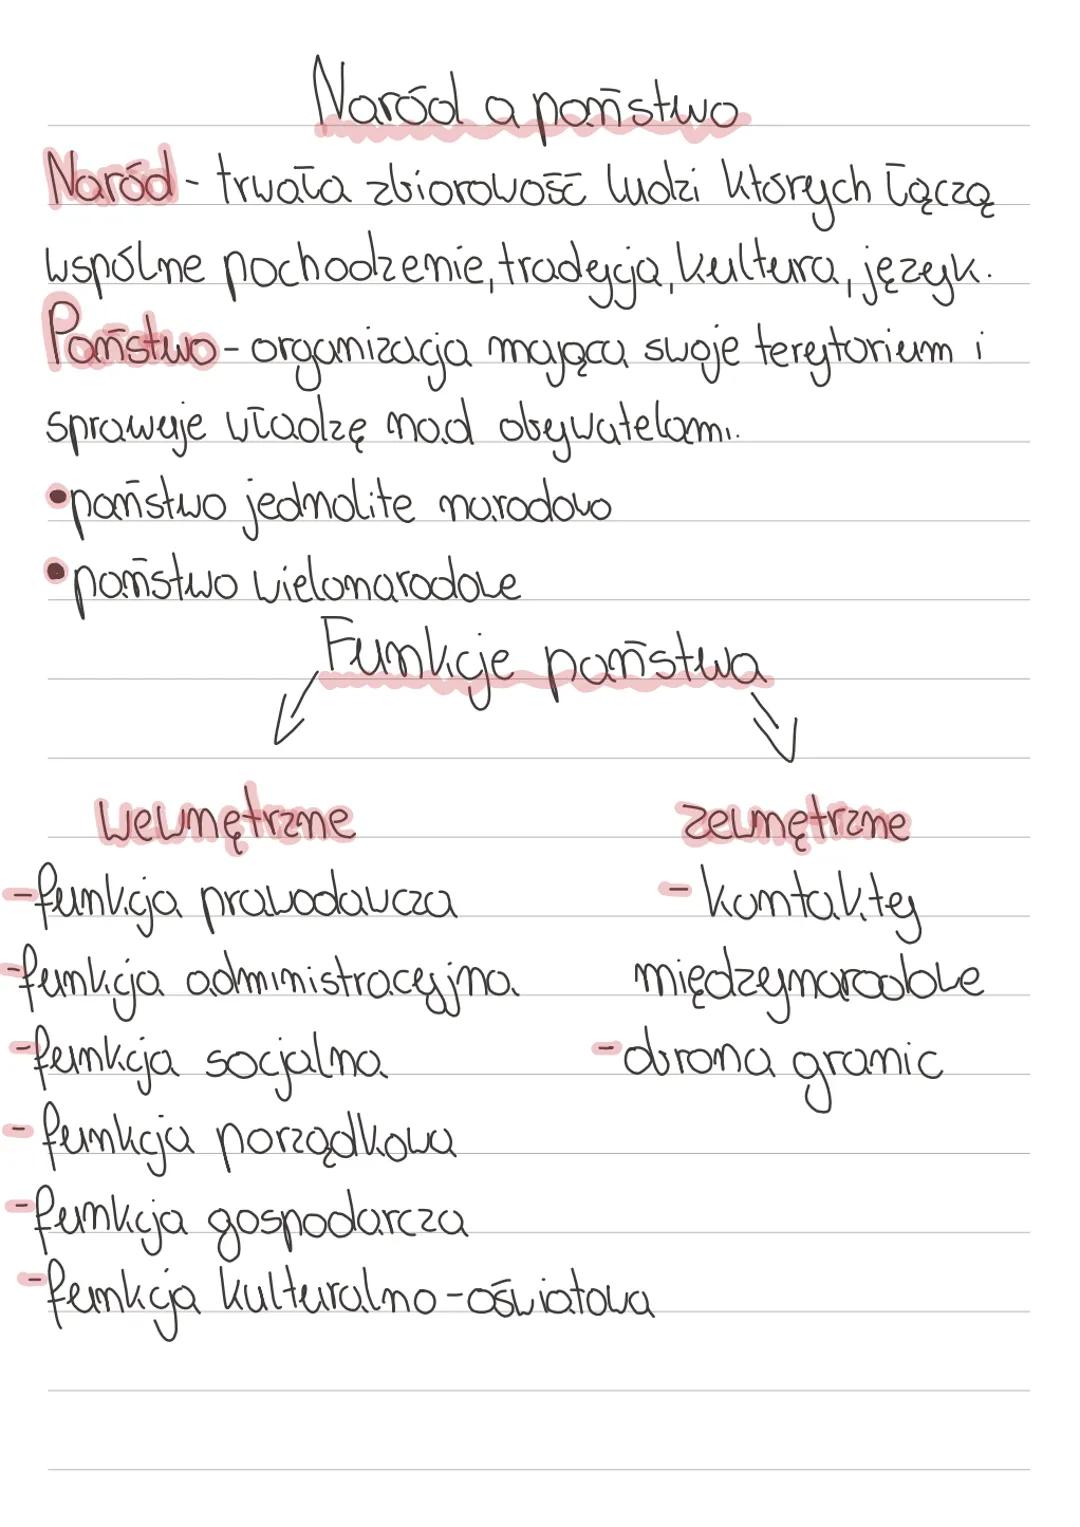 Naród a państwo
Naród - trwała zbiorowość ludzi których łączą
wspólne pochodzenie, tradycja, kultura, język.
Państwo - organizacja mająca swoje terytorium i
sprawuje władzę nad obywatelami.
•państwo jednolite narodowo
•państwo wielonarodowe
Funkcje państwa
wewnętrzne
zewnętrzne
-funkcja prawodawcza
- kontakty
-funkcja administracyjna
międzynarodowe
-funkcja socjalna
-obrona granic
- funkcja porządkowa
-funkcja gospodarcza
-funkcja kulturalno-oświatowa